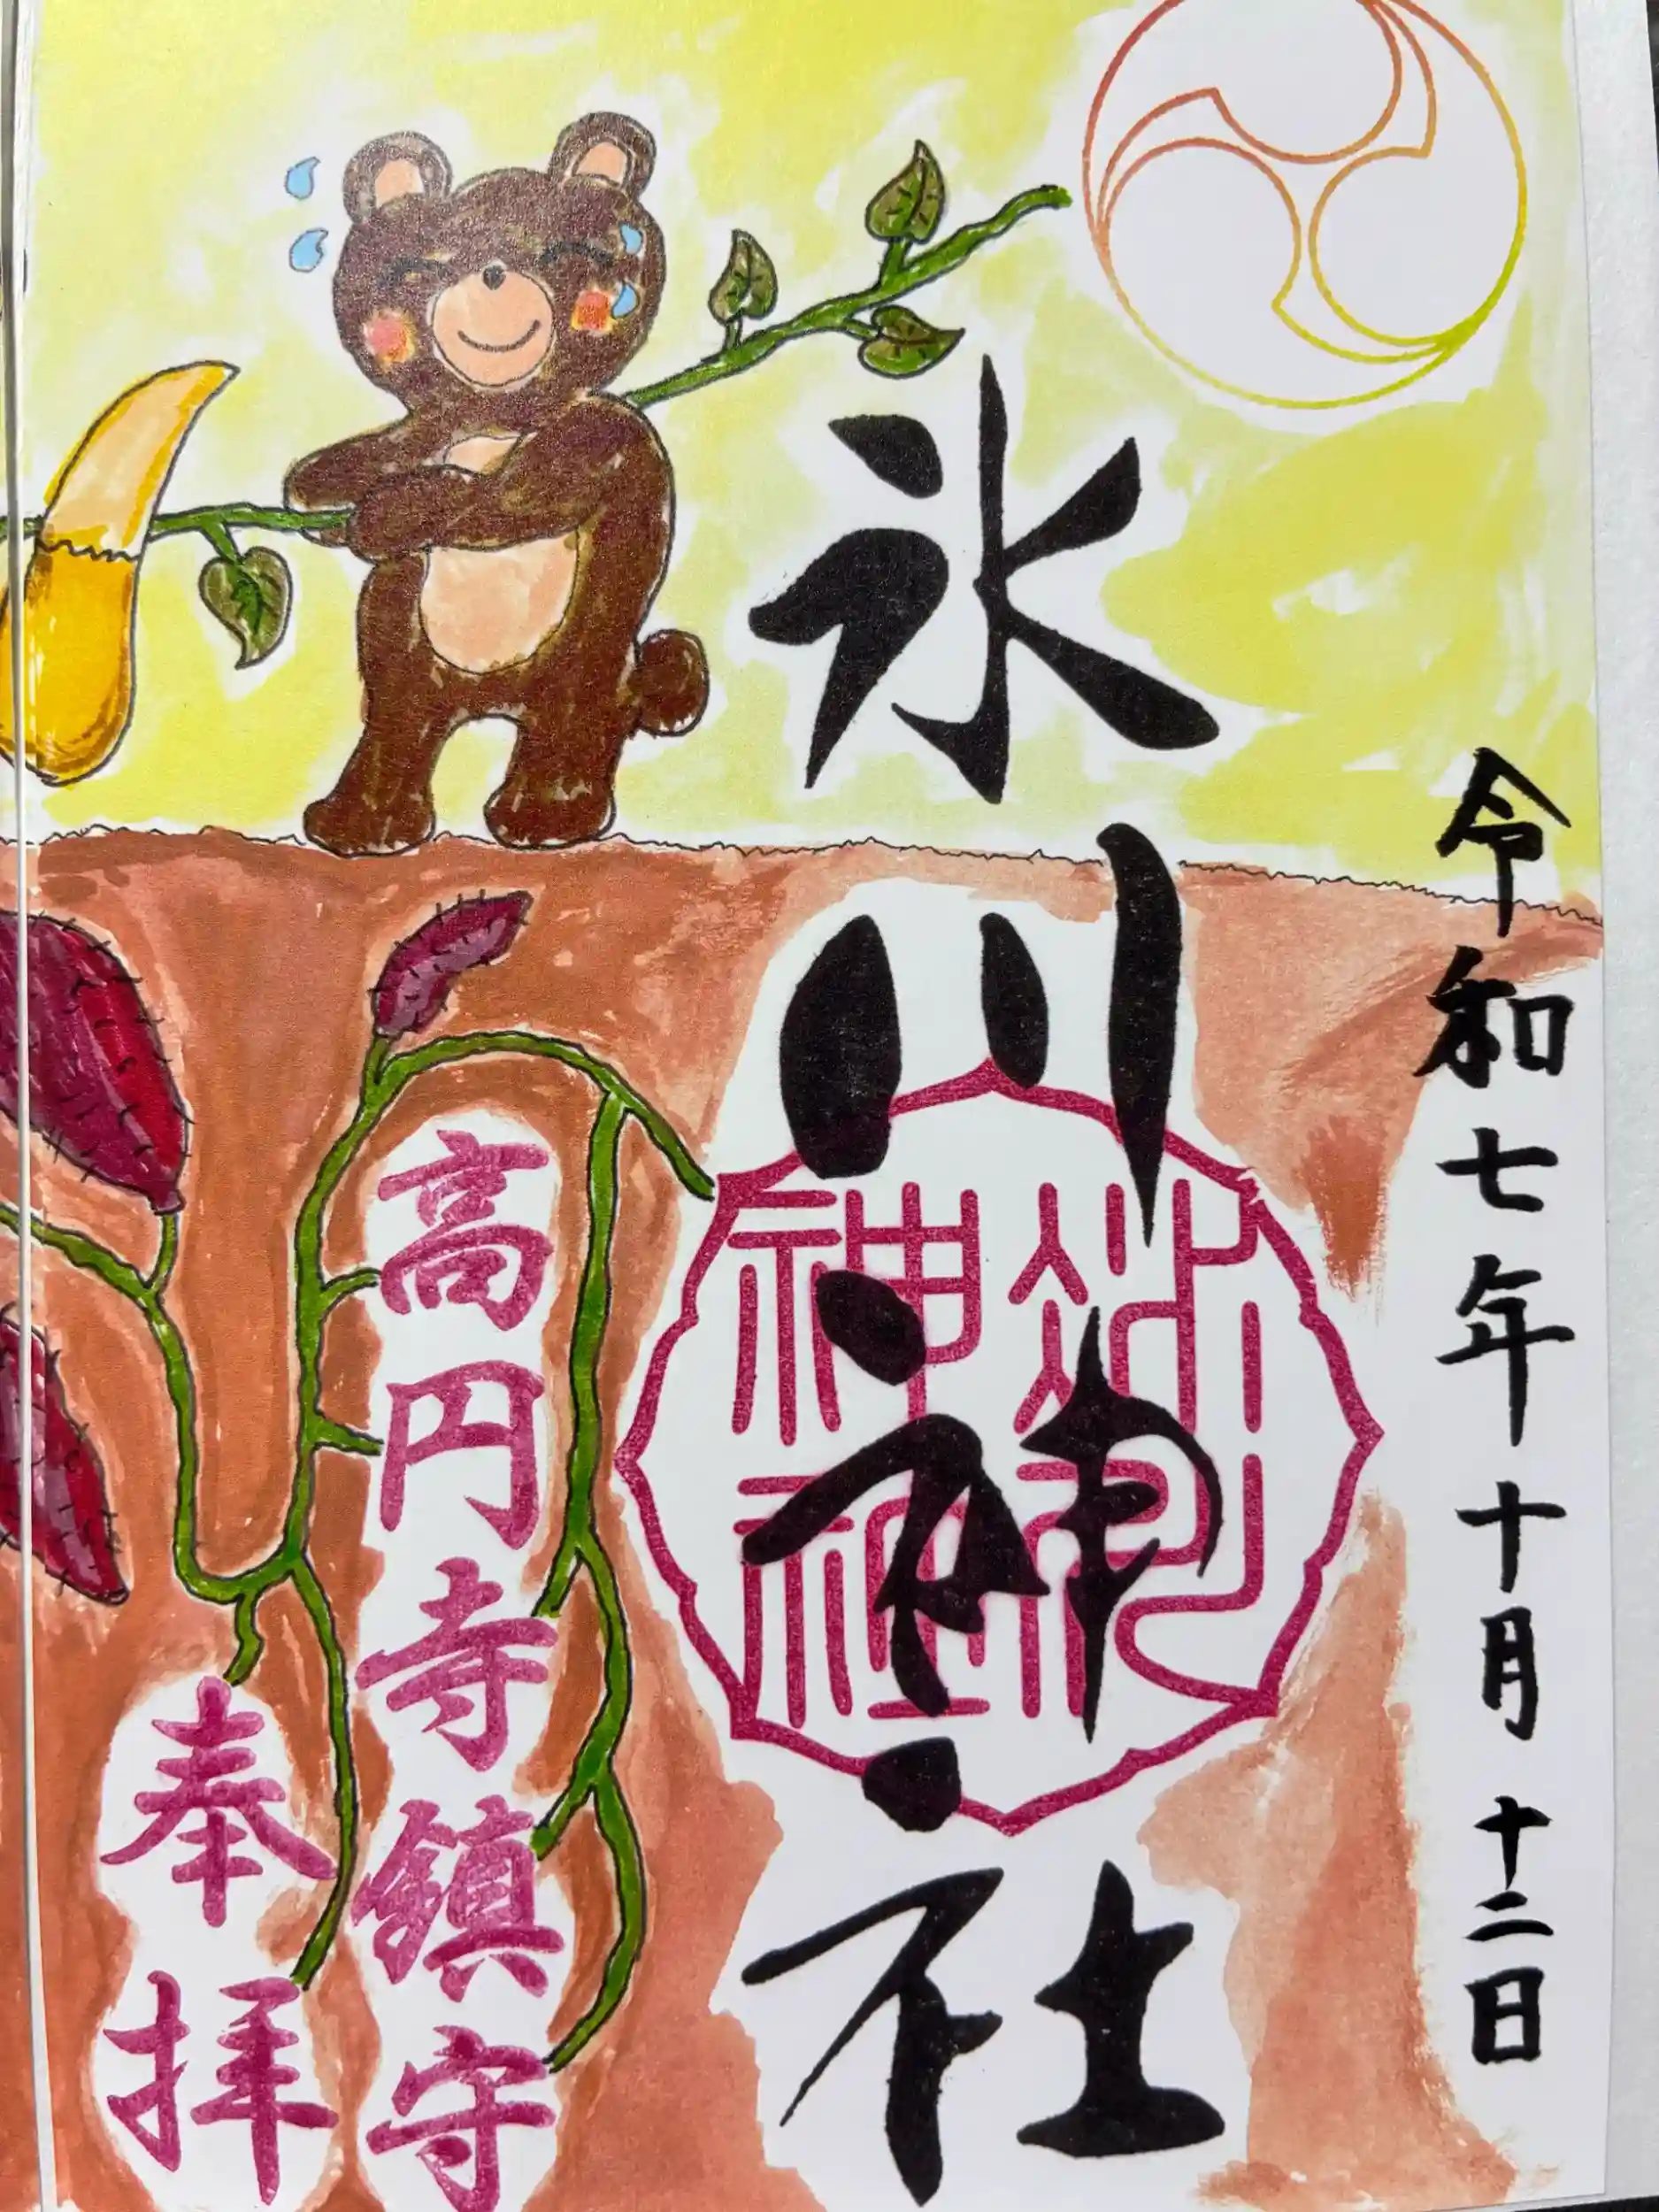 令和七年十月十二日
氷川神社
神社
高円寺鎮守
奉拝